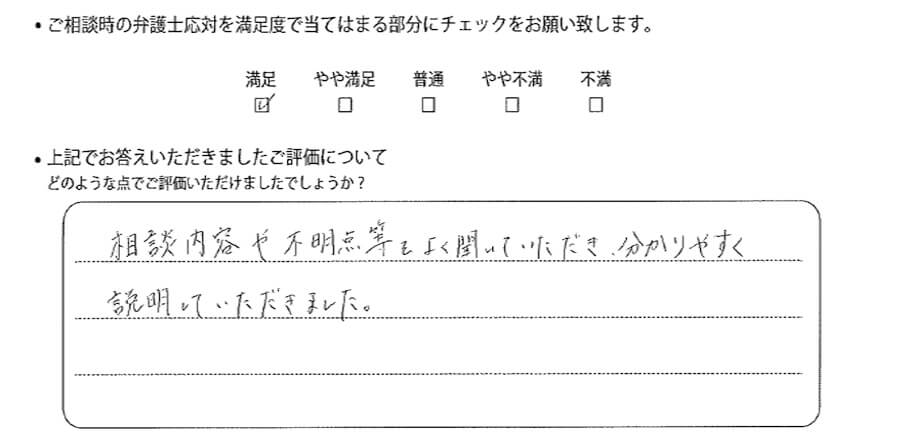 • ご相談時の弁護士応対を満足度で当てはまる部分にチェックをお願い致します。
満足 やや満足 普通 やや不満 不満
☑ □ □ □ □
• 上記でお答えいただきましたご評価について
どのような点でご評価いただけましたでしょうか？
相談内容や不明点等をよく聞いていただき、分かりやすく
説明していただきました。